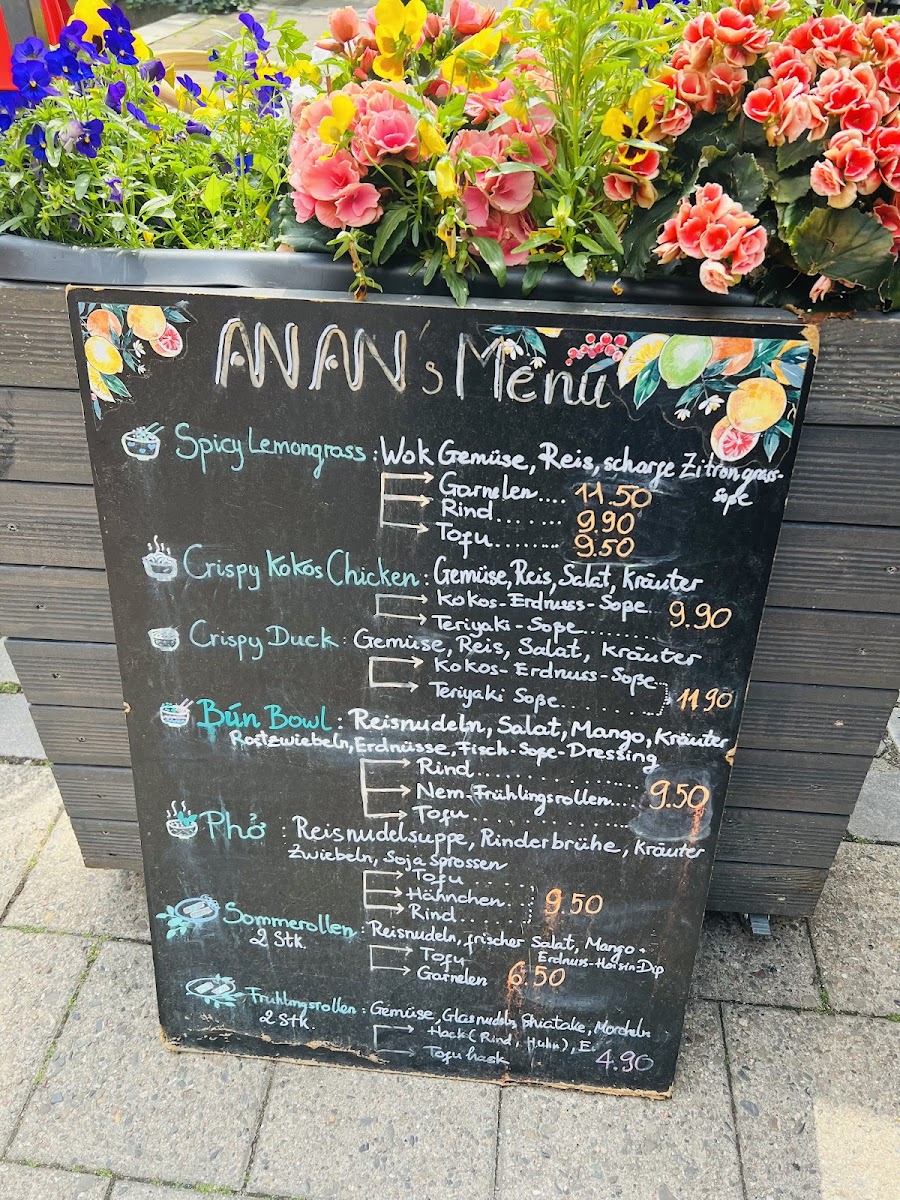 ANAN's Menu
Spicy Lemongrass : Wok Gemüse, Reis, scharfe Zitrongrass-
soße
Garnelen.... 11.50
Rind....... 9.90
Tofu........ 9.50
Crispy Kokos Chicken : Gemüse, Reis, Salat, Kräuter
Kokos-Erdnuss-Soße.. 9.90
Teriyaki-Soße........
Crispy Duck : Gemüse, Reis, Salat, Kräuter
Kokos-Erdnuss-Soße..
Teriyaki Soße........ 11.90
Bún Bowl : Reisnudeln, Salat, Mango, Kräuter
Röstzwiebeln, Erdnüsse, Fisch-Soße-Dressing
Rind..............
Nem-Frühlingsrollen.... 9.50
Tofu..............
Phở : Reisnudelsuppe, Rinderbrühe, Kräuter
Zwiebeln, Soja Sprossen
Tofu........
Hähnchen.... 9.50
Rind........
Sommerollen : Reisnudeln, frischer Salat, Mango +
2 Stk. Erdnuss-Hoisin-Dip
Tofu
Garnelen 6.50
Frühlingsrollen : Gemüse, Glasnudeln, Shiatake, Morcheln
2 Stk. Hack (Rind, Huhn), E.
Tofu hack 4.90